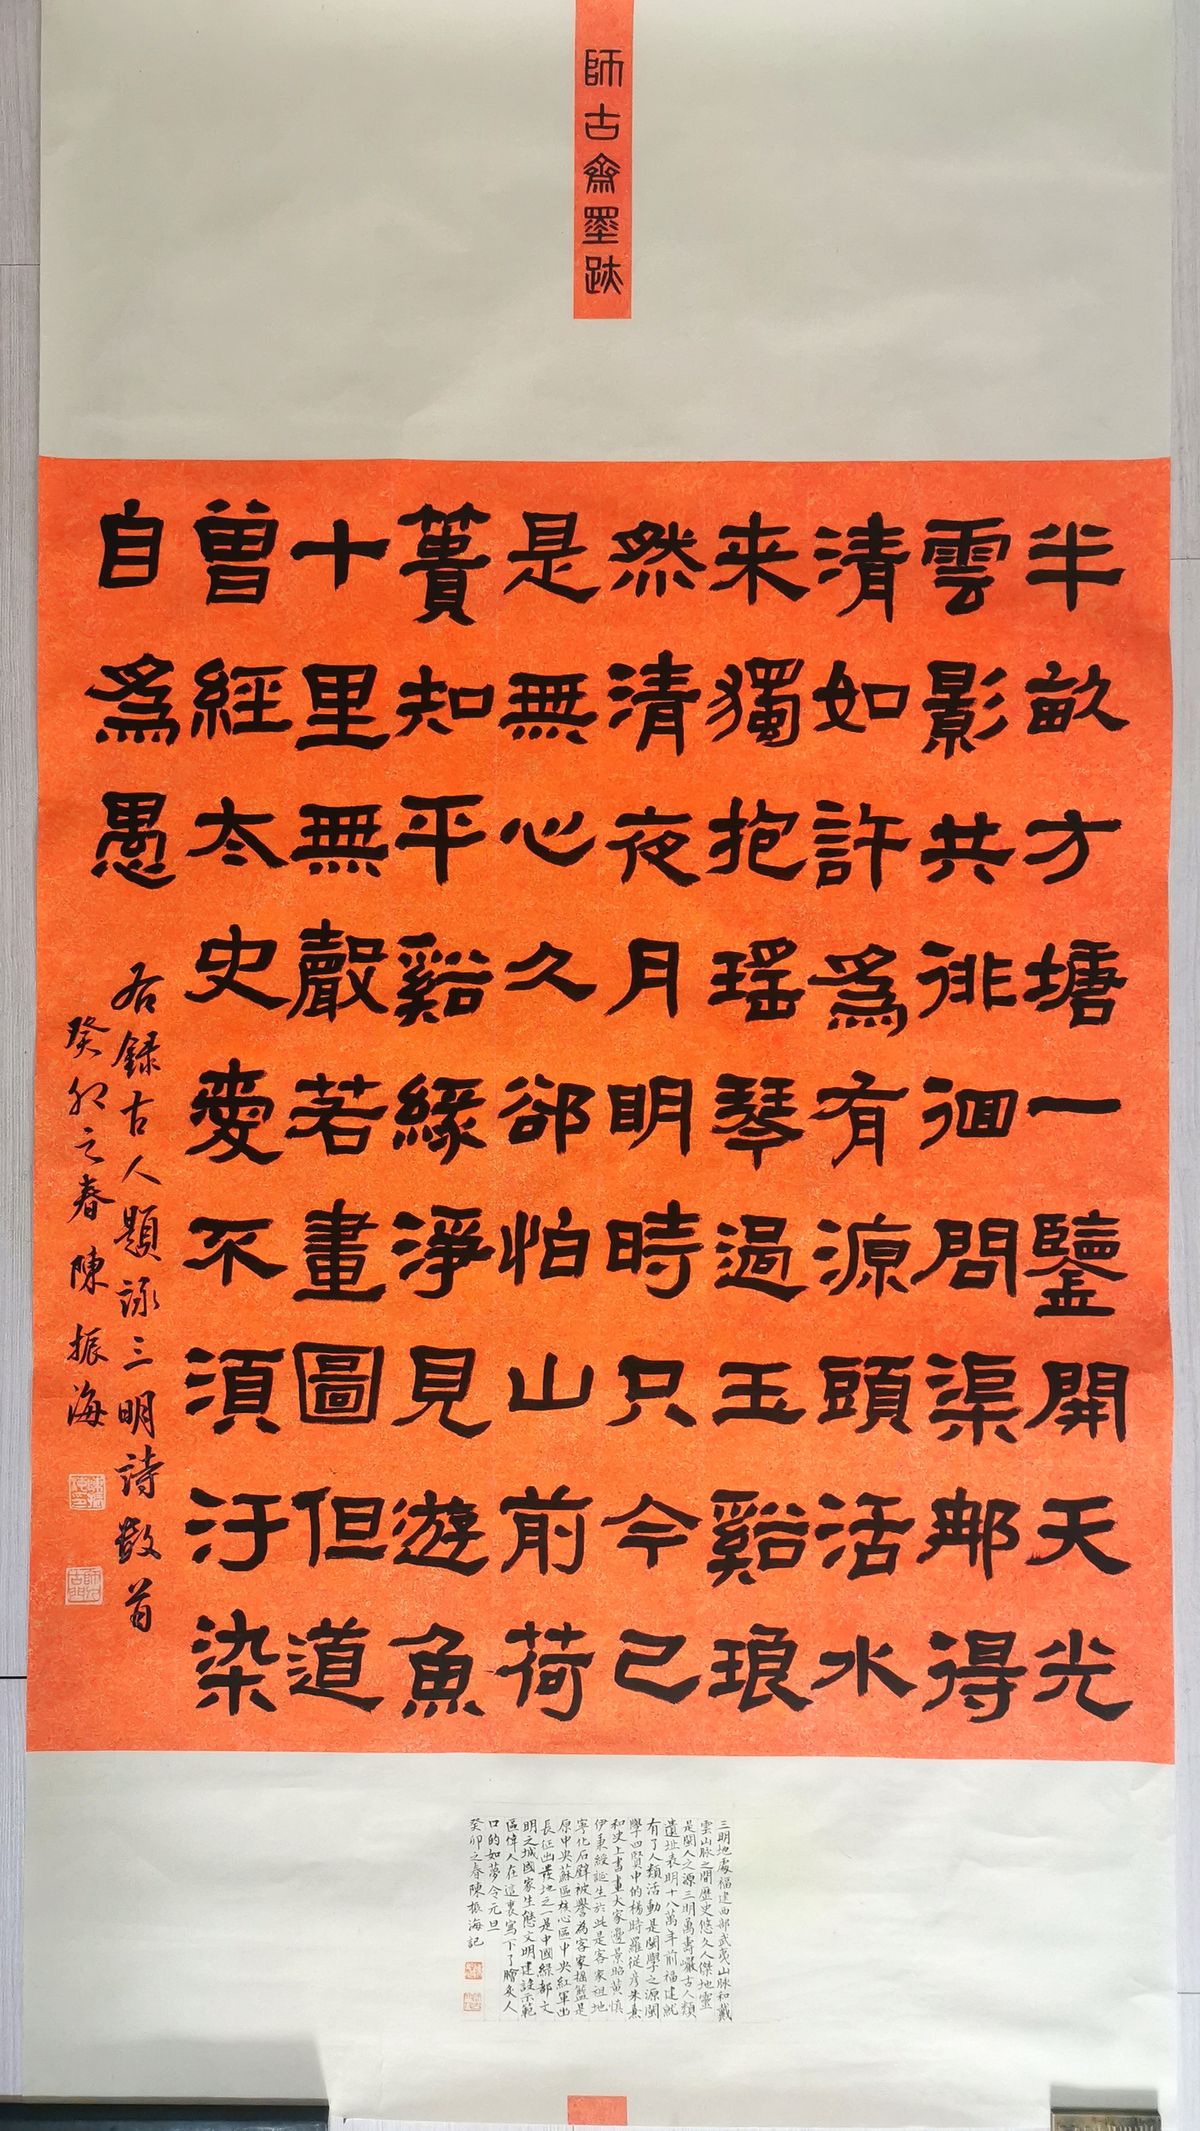 師古齋墨跡
半畝方塘一鑒開天光
雲影共徘徊問渠那得
清如許爲有源頭活水
来獨抱瑤琴過玉谿琅
然清夜月明時只今已
是無心久卻怕山前荷
蕢知平谿緣淨見遊魚
十里無聲若畫圖但道
曾經太史愛不須汙染
自爲愚
右録古人題詠三明詩數首
癸卯之春陳振海
三明地處福建西部武夷山脉和戴
雲山脉之間歷史悠久人傑地靈
是閩人之源三明萬壽巖古人類
遺址表明十八萬年前福建就
有了人類活動是閩學之源閩
學四賢中的楊時羅從彦朱熹
和史上書畫大家邊景昭黄慎
伊秉綬誕生於此是客家祖地
寧化石壁被譽為客家摇籃是
原中央蘇區核心區中央紅軍出
長征出發地之一是中國綠都文
明之城國家生態文明建設示範
區偉人在這裏寫下了膾炙人
口的如夢令元旦
癸卯之春陳振海記